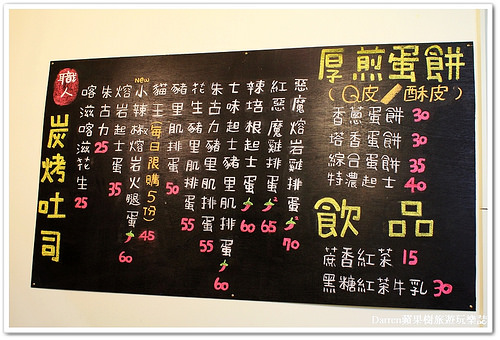 職人
炭烤吐司
喀滋喀滋花生 25
朱古力 25
熔岩起士蛋 35
小辣椒熔岩火腿蛋 60
new
貓王(每日限購5份) 45
豬里肌排蛋 50
花生豬里肌排蛋 55
朱古力豬里肌排蛋 55
七味起士豬里肌排蛋 60
辣培根起士蛋 60
紅惡魔雞排蛋 65
惡魔熔岩雞排蛋 70
厚煎蛋餅
(Q皮/酥皮)
香蔥蛋餅 30
塔香蛋餅 30
綜合蛋餅 35
特濃起士 40
飲品
蔗香紅茶 15
黑糖紅茶牛乳 30
Darren蘋果樹旅遊玩樂誌